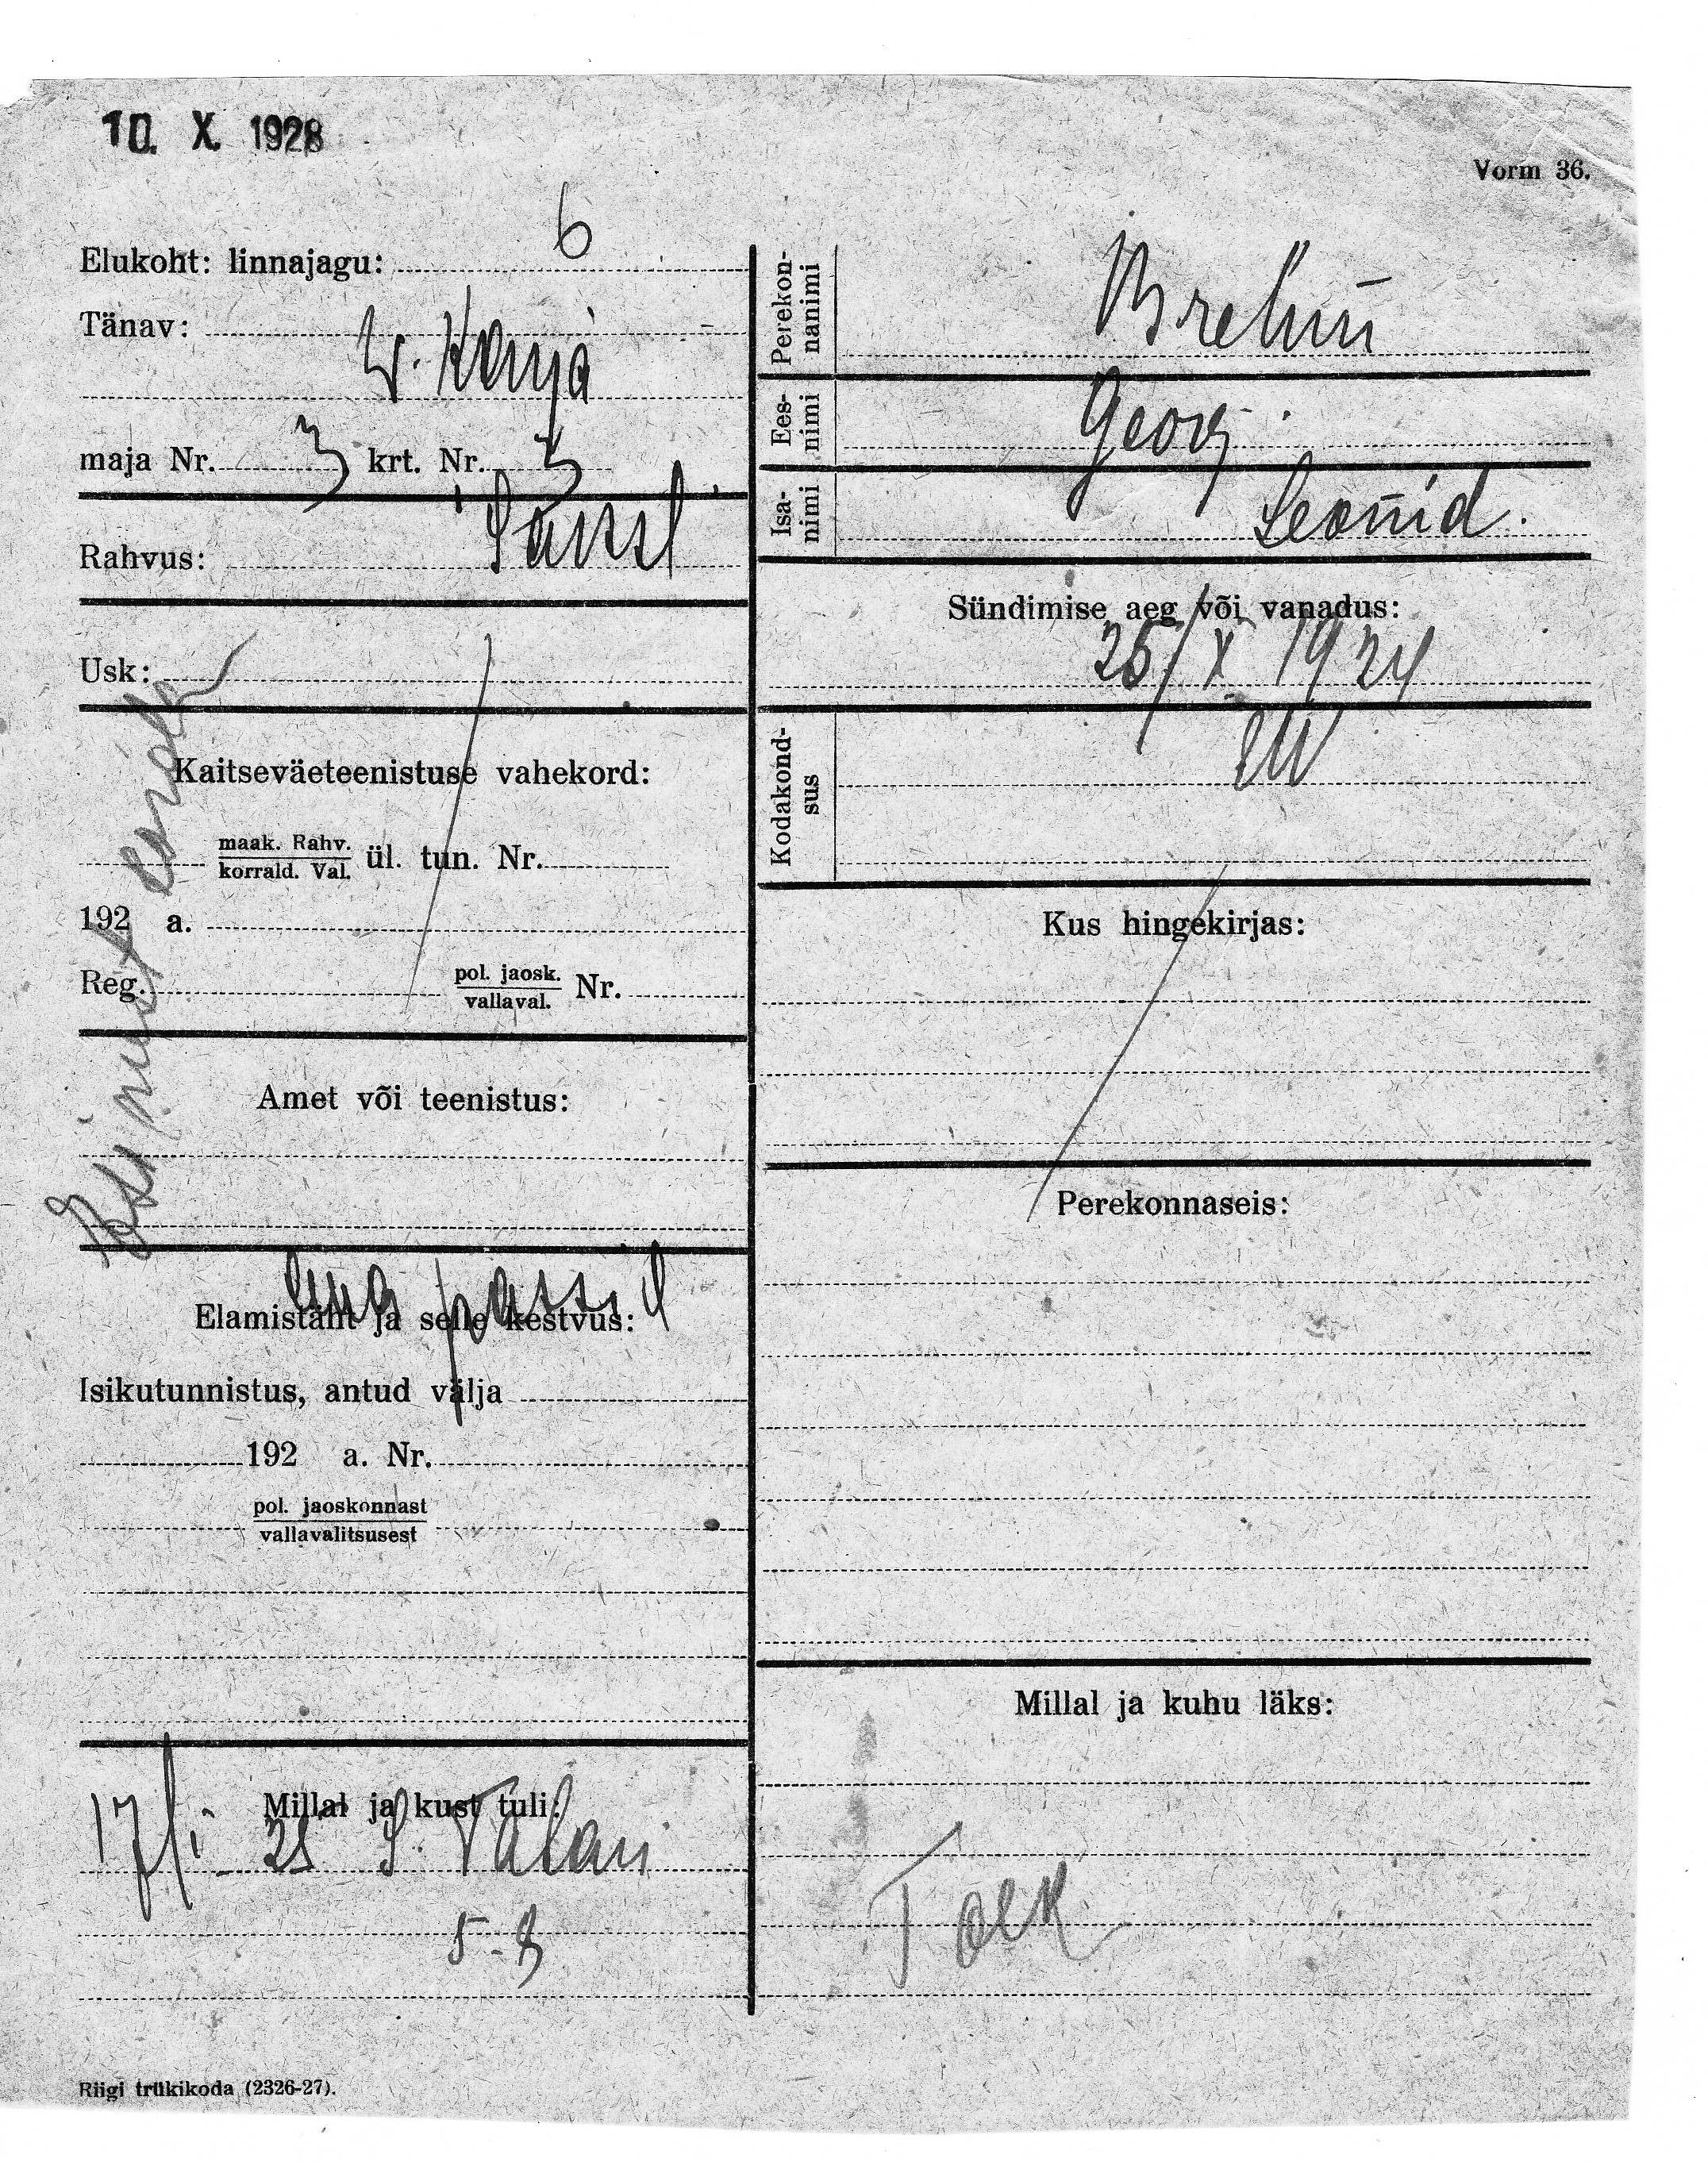 10. X. 1928
Vorm 36.
Elukoht: linnajagu: 6
Tänav: W. Karja
maja Nr. 3 krt. Nr. 3
Rahvus: Saksl
Usk:
Kaitseväeteenistuse vahekord:
maak. Rahv. korrald. Val. ül. tun. Nr.
192 a.
Reg. pol. jaosk. vallaval. Nr.
Amet või teenistus:
ema passil
Elamistäht ja selle kestvus:
Isikutunnistus, antud välja
192 a. Nr.
pol. jaoskonnast
vallavalitsusest
Millal ja kust tuli:
17/I 28 S. Tatari
5-8
Riigi trükikoda (2326-27).
Perekon-nanimi Brehm
Ees-nimi Georg
Isa-nimi Leonid.
Sündimise aeg või vanadus:
25/X 1924
Kodakond-sus EW
Kus hingekirjas:
Perekonnaseis:
Millal ja kuhu läks: